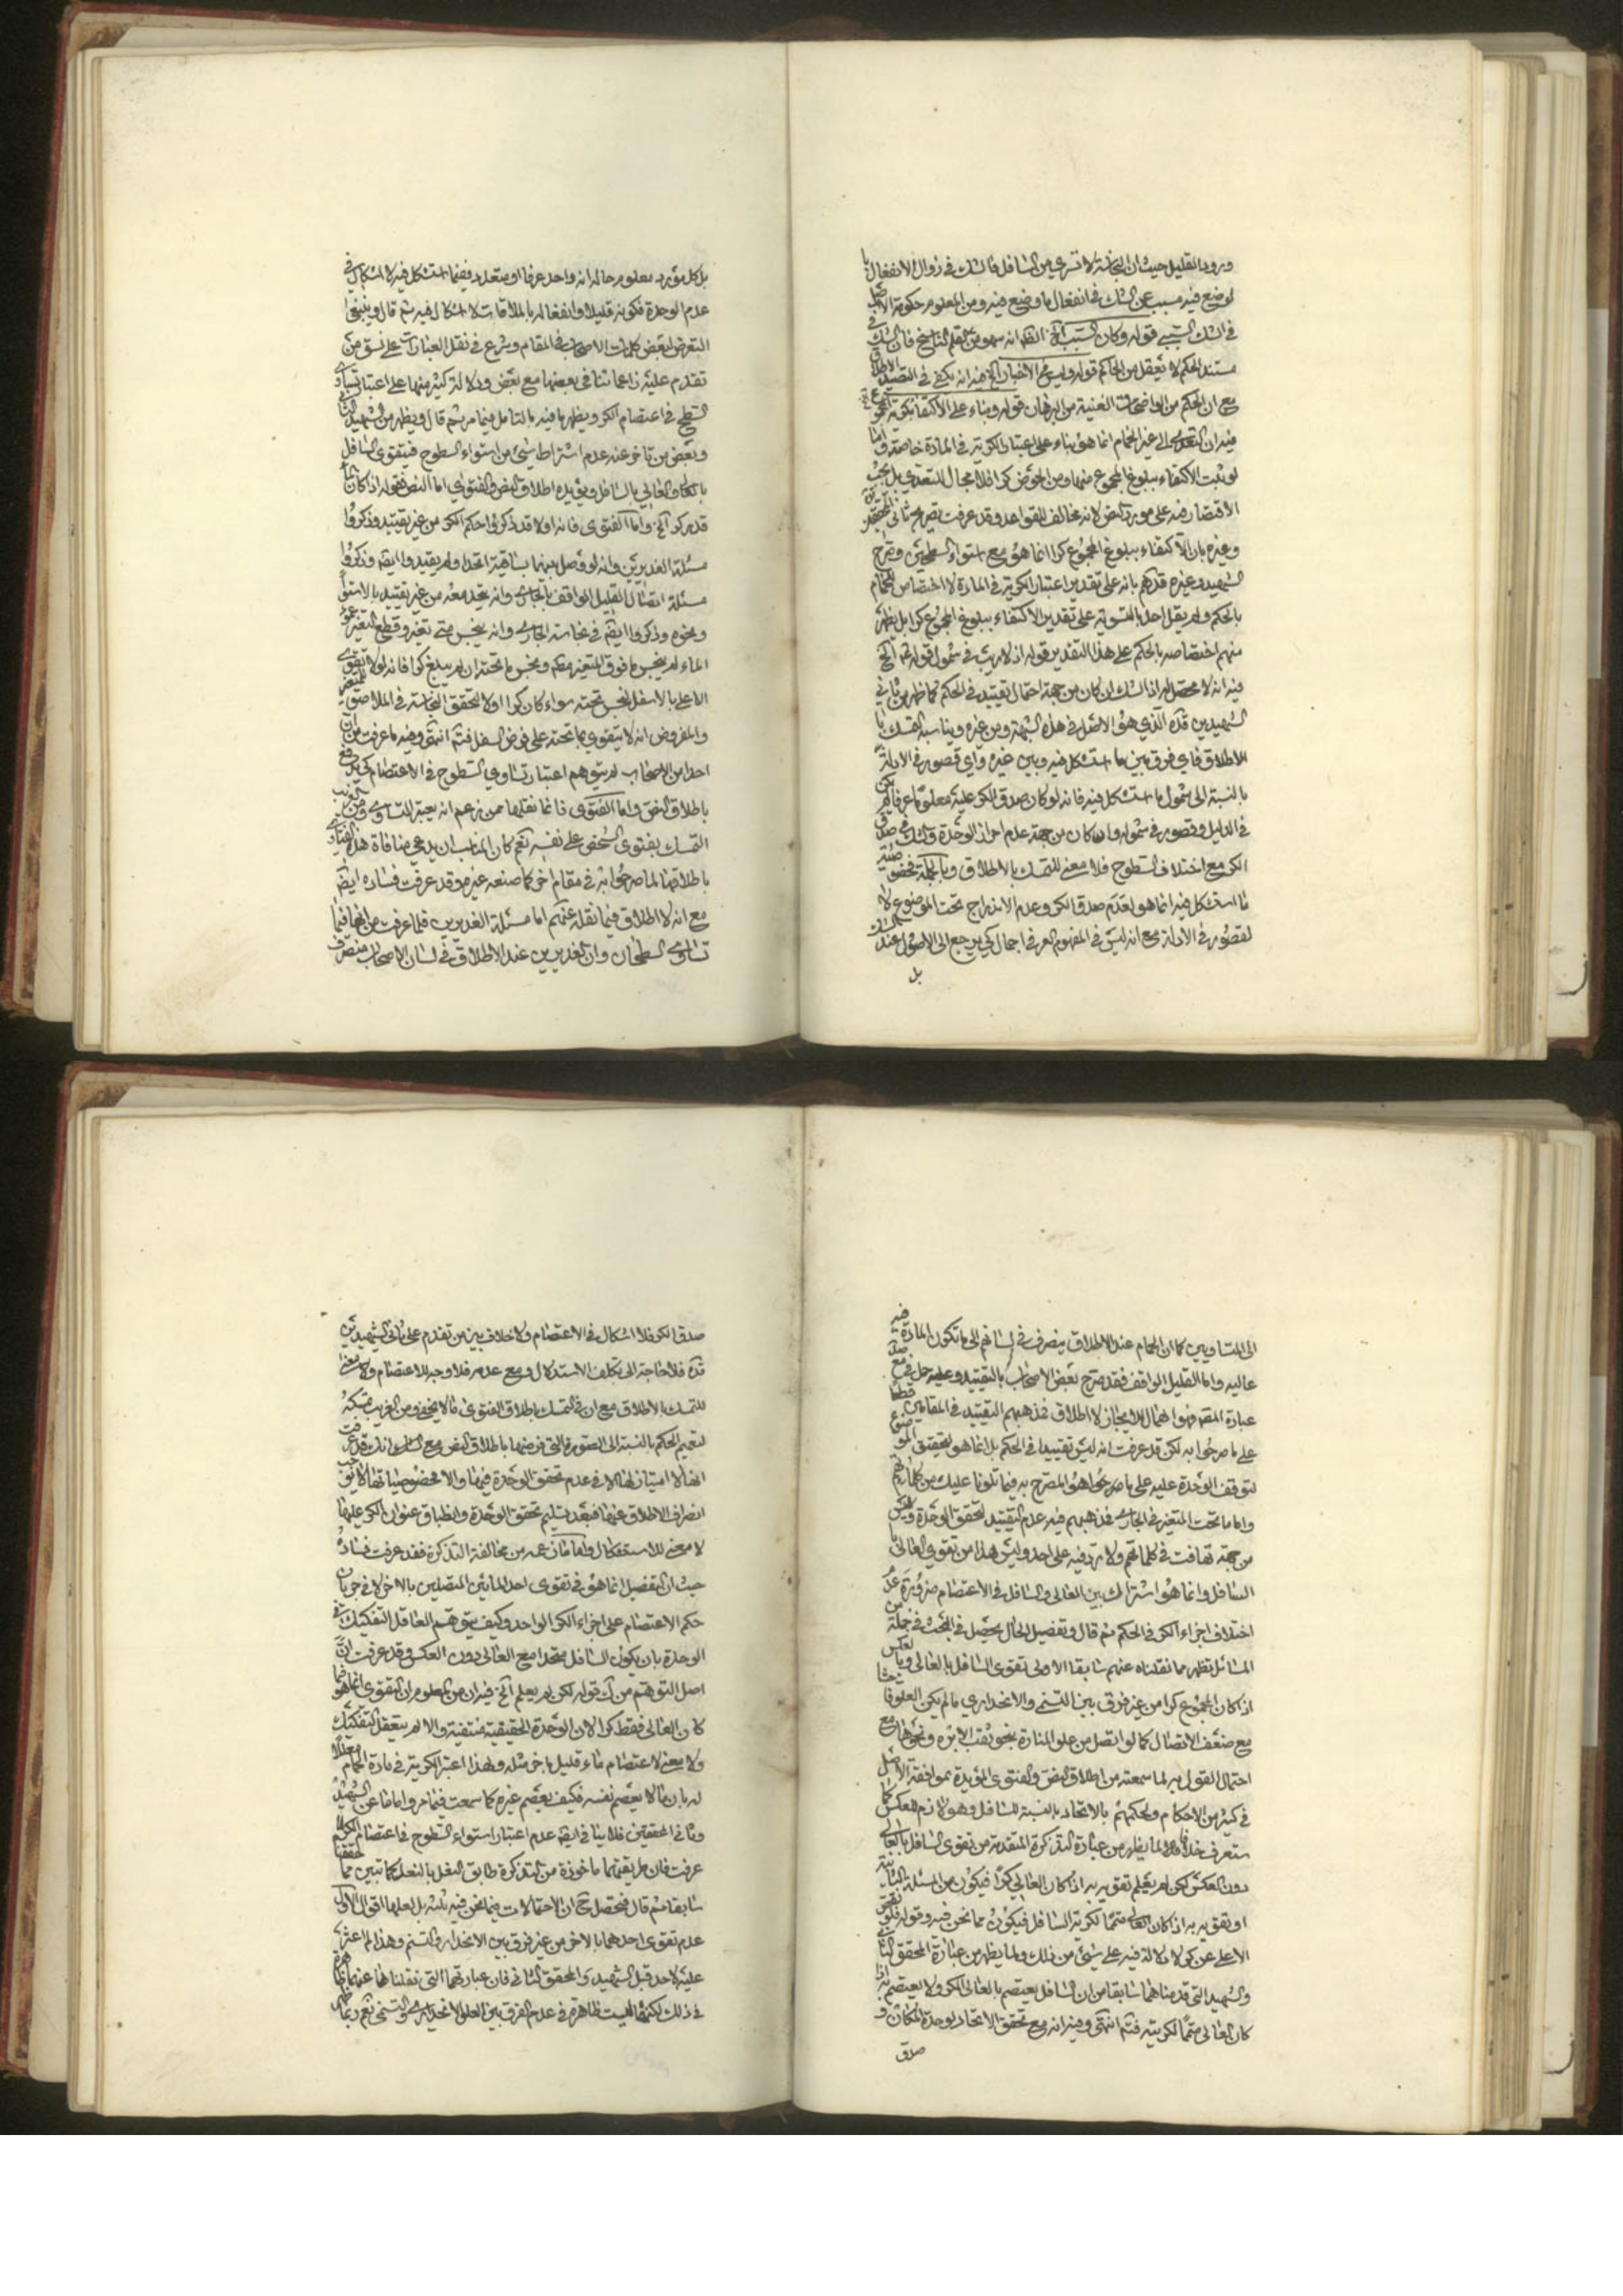 ورود القليل حيث ان النجاسة لا تسري من السافل فالشك في زوال الانفعال
لوضع فيه مسبب عن الشك في انفعال ما وضع فيه ومن المعلوم حكومة الاصل
في الشك السببي قوله وكان السبب الخ الظ انه سهو من قلم الناسخ فان الشك في
مستند الحكم لا يعقل من الحاكم قوله وليس في الاخبار الخ فيه انه يكفي في التقييد
مع ان الحكم من الواضحات الغنية من البرهان قوله وبناء على الاكتفاء بكون المجموع
فيه ان التعدي الى غير الحمام انما هو بناء على اعتبار الكرية في المادة خاصة واما
لو ثبت الاكتفاء ببلوغ المجموع منها ومن الحوض كرا فلا مجال للتعدي بل يجب
الاقتصار فيه على مورد النص لانه مخالف للقواعد وقد عرفت تصريح ثاني المحققين
وغيره بان الاكتفاء ببلوغ المجموع كرا انما هو مع استواء السطحين وصرح
الشهيد وغيره قدهم بانه على تقدير اعتبار الكرية في المادة لا اختصاص للحمام
بالحكم ولم يقل احد بالتسوية على تقدير الاكتفاء ببلوغ المجموع كرا بل يظهر
منهم اختصاصه بالحكم على هذا التقدير قوله اذ لا ريب في شمول قوله الخ
فيه انه لا محصل له اذ الشك ان كان من جهة احتمال تقييد في الحكم كما ظهر من ثاني
الشهيدين قده الذي هو الاصل في هذه الشبهة ومن غيره ويناسبه التمسك با
لاطلاق فاي فرق بين ما استشكل فيه وبين غيره واي قصور في الادلة
بالنسبة الى شمول ما استشكل فيه فانه لو كان صدق الكر عليه معلوما عرفا لم يكن
في الدليل قصور في شموله وان كان من جهة عدم احراز الوحدة والشك في صدق
الكر مع اختلاف السطوح فلا معنى للتمسك بالاطلاق وبالجملة فخصوصية
ما استشكل فيه انما هو لعدم صدق الكر وعدم الاندراج تحت الموضوع لا
لقصور في الادلة مع انه ليس في المفهوم العرفي اجمال كي يرجع الى الاصول عند الشك
بل
بل كل مورد معلوم حاله انه واحد عرفا او متعدد ففيما استشكل فيه لا اشكال في
عدم الوحدة فكونه قليلا وانفعاله بالملاقات لا اشكال فيه ثم قال وينبغي
التعرض لبعض كلمات الاصحاب في المقام وشرع في نقل العبارات على نسق من
تقدم عليه زاعما تنافي بعضها مع بعض ودلالة كثير منها على اعتبار تساوي
السطح في اعتصام الكر ويظهر ما فيه بالتامل فيما مر ثم قال ويظهر من الشهيد الثاني
وبعض من تاخر عنه عدم اشتراط شيء من استواء السطوح فيتقوى السافل
بالعالي والعالي بالسافل ويؤيده اطلاق النص والفتوى اما النص فقوله اذا كان الماء
قدر كر الخ واما الفتوى فانه اولا قد ذكروا حكم الكر من غير تقييد وذكروا
مسئلة الغديرين وانه لو وصل بينهما بساقية اتحدا ولم يقيدوا ايضا وذكروا
مسئلة اتصال القليل الواقف بالجاري وانه يتحد معه من غير تقييد بالاستواء
ونحوه وذكروا ايضا في نجاسة الجاري وانه ينجس متى تغير وقطع التغير عمود
الماء لم ينجس ما فوق المتغير منه ونجس ما تحته ان لم يبلغ كرا فانه لولا تقوى
الاعلى بالاسفل لنجس تحته سواء كان كرا اولا لتحقق النجاسة في الملاصق للمتغير
والمفروض انه لا يتقوى بما تحته على فرض السفل فتم انتهى وفيه ما عرفت من ان
احدا من الاصحاب لم يتوهم اعتبار تساوي السطوح في الاعتصام كي يدفع
باطلاق النص واما الفتوى فانما نقلها ممن زعم انه يعتبر التساوي ومن الغريب
التمسك بفتوى الشخص على نفسه نعم كان المناسب ان يدعي منافاة هذه الفتاوى
باطلاقها لما صرحوا به في مقام اخر كما صنعه غيره وقد عرفت فساده ايضا
مع انه لا اطلاق فيما نقله عنهم اما مسئلة الغديرين فلما عرفت من انها فيما
تساوى السطحان وان الغديرين عند الاطلاق في لسان الاصحاب منصرف
الى المتساويين كما ان الحمام عند الاطلاق ينصرف في لسانهم الى ما تكون المادة فيه
عاليه واما القليل الواقف فقد صرح بعض الاصحاب بالتقييد وعليه حمل في مع صد
عبارة المصنف فهو اهمال للايجاز لا اطلاق فمذهبهم التقييد في المقامين قطعا
على ما صرحوا به لكن قد عرفت انه ليس تقييدا في الحكم بل انما هو لتحقق الموضوع
لتوقف الوحدة عليه على ما صرحوا هو المصرح به فيما تلونا عليك من كلماتهم
واما ما تحت المتغير في الجاري فمذهبهم فيه عدم التقييد لتحقق الوحدة وليس
من جهة تهافت في كلماتهم ولا تردفيه على احد وليس هذا من تقوى العالي
السافل وانما هو اشتراك بين العالي والسافل في الاعتصام ضرورة عدم
اختلاف اجزاء الكر في الحكم ثم قال وتفصيل الحال يحصل في البحث في جملة من
المسائل تظهر مما نقلناه عنهم سابقا الاولى تقوى السافل بالعالي وبالعكس
اذا كان المجموع كرا من غير فرق بين التسنم والانحداري ما لم يكن العلو فاحشا
مع ضعف الاتصال كما لو اتصل من علو المنارة بنحو ثقب الابره ونحوها مع
احتمال القول به لما سمعته من اطلاق النص والفتوى المؤيدة بموافقة الاصل
في كثير من الاحكام ولحكمهم بالاتحاد بالنسبة للسافل وهو لازم للعكس كما
ستعرف خلافا لما يظهر من عبارة التذكرة المتقدمة من تقوى السافل بالعالي
دون العكس لكن لم يعلم تقويه به اذا كان العالي كرا فيكون من المسئلة الثانية
او تقويه به اذا كان العالي متمما لكرية السافل فيكون مما نحن فيه وقوله فلو نقص
الاعلى عن كر لا دلالة فيه على شيء من ذلك ولما يظهر من عبارة المحقق الثاني
والشهيد التي قدمناهما سابقا من ان السافل يعتصم بالعالي الكر ولا يعتصم به اذا
كان العالي متمما لكريته فتم انتهى وفيه انه مع تحقق الاتحاد لوحدة المكان و
صدق
صدق الكر فلا اشكال في الاعتصام ولا خلاف بين من تقدم على ثاني الشهيدين
قده فلا حاجة الى تكلف الاستدلال ومع عدمه فلا وجه للاعتصام ولا معنى
للتمسك بالاطلاق مع ان في التمسك باطلاق الفتوى ما لا يخفى ومن الغريب تمسكه
لتعميم الحكم بالنسبة الى الصورة التي فرضها باطلاق النص مع انك قد عرفت
انها لا امتياز لها الا في عدم تحقق الوحدة فيها والا فخصوصياتها لا توجب
انصراف الاطلاق عنها فبعد تسليم تحقق الوحدة وانطباق عنوان الكر عليها
لا معنى للاستشكال واما ما زعمه من مخالفة التذكرة فقد عرفت فساده
حيث ان التفصيل انما هو في تقوى احد المائين المتصلين بالاخر لا في جريان
حكم الاعتصام على اجزاء الكر الواحد وكيف يتوهم العاقل التفكيك في
الوحدة بان يكون السافل متحدا مع العالي دون العكس وقد عرفت ان
اصل التوهم من ك قوله لكن لم يعلم الخ فيه ان من المعلوم ان التقوى انما هو فيما
كان العالي فقط كرا لان الوحدة الحقيقية منتفية والا لم يتعقل التفكيك
ولا معنى لاعتصام ماء قليل باخر مثله ولهذا اعتبر الكرية في مادة الحمام معللا
له بان ما لا يعصم نفسه فكيف يعصم غيره كما سمعت فيما مر واما ما عن الشهيد
وثاني المحققين فلا ينافي ايضا عدم اعتبار استواء السطوح في اعتصام الكر لما
عرفت فان طريقتهما ماخوذة من التذكرة طابق النعل بالنعل كما تبين مما حققنا
سابقا ثم قال فتحصل ح ان الاحتمالات فيما نحن فيه ثلثه بل لعلها اقوال الاول
عدم تقوى احدهما بالاخر من غير فرق بين الانحدار والتسنم وهذا لم اعثر
عليه لاحد قبل الشهيد والمحقق الثاني فان عبارتهما التي نقلناها عنهما ظاهرة
في ذلك لكنها ليست ظاهرة في عدم الفرق بين العلو الانحداري والتسنمي نعم ربما